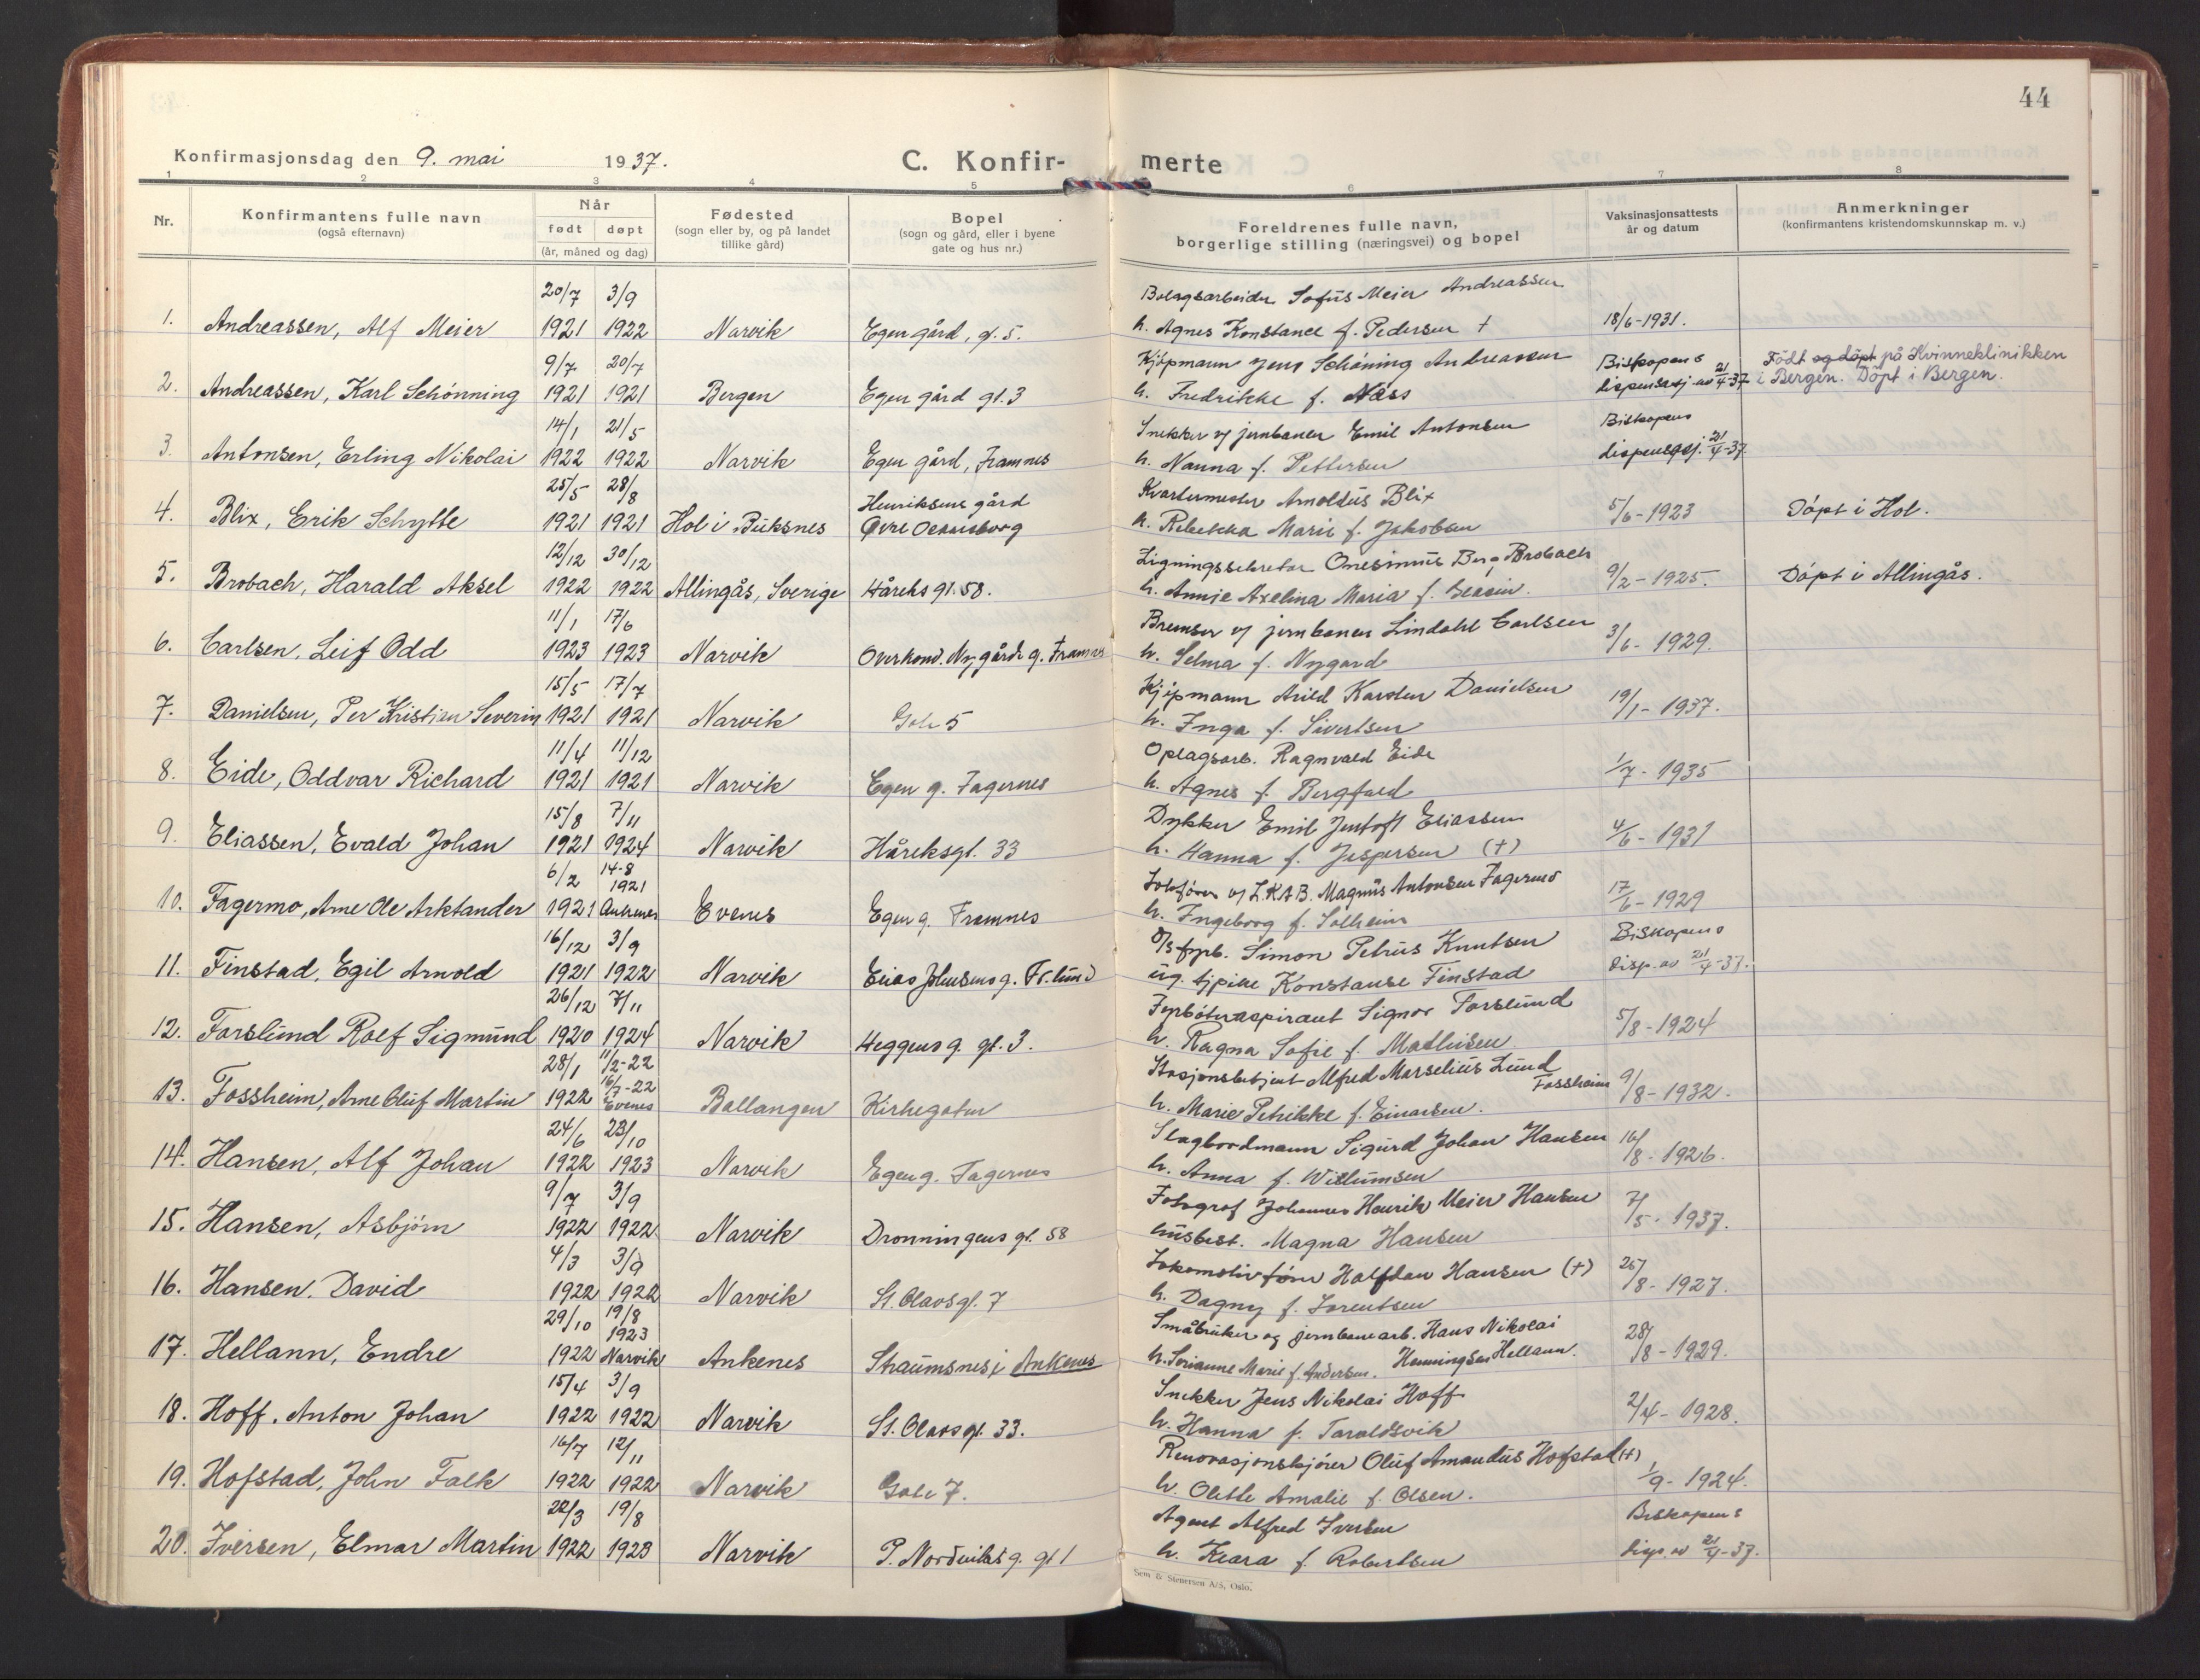 44
Konfirmasjonsdag den 9. mai 1937.
C. Konfir-
merte
1 2 3 4 5 6 7 8
Nr.
Konfirmantens fulle navn
(også efternavn)
Når
født døpt
(år, måned og dag)
Fødested
(sogn eller by, og på landet
tillike gård)
Bopel
(sogn og gård, eller i byene
gate og hus nr.)
Foreldrenes fulle navn,
borgerlige stilling (næringsvei) og bopel
Vaksinasjonsattests
år og datum
Anmerkninger
(konfirmantens kristendomskunnskap m. v.)
20/7 3/9 Bolagsarbeider Sofus Meier Andreassen
1. Andreassen, Alf Meier 1921 1922 Narvik Egen gård, g. 5. h. Agnes Konstance f. Pedersen † 18/6-1931.
9/7 20/7 Kjøpmann Jens Schøning Andreassen Biskopens Født og døpt på Kvinneklinikken
2. Andreassen, Karl Schønning 1921 1921 Bergen Egen gård gt. 3 h. Fredrikke f. Næss dispensasj. av 21/4-37 i Bergen. Døpt i Bergen.
14/1 21/5 Snekker v/ jernbanen Emil Antonsen Biskopens
3. Antonsen, Erling Nikolai 1922 1922 Narvik Egen gård, Framnes h. Nanna f. Pettersen dispensasj. 21/4-37
25/5 28/8 Henriksens gård Kvartermester Arnoldus Blix
4. Blix, Erik Schytte 1921 1921 Hol i Buksnes Øvre Oscarsborg h. Rebekka Marie f. Jakobsen 5/6-1923 Døpt i Hol.
12/12 30/12 Ligningssekretær Onesimus Berg Brobach
5. Brobach, Harald Aksel 1922 1922 Allingås, Sverige Håreks gt. 58. h. Annie Axelina Maria f. 9/2-1925. Døpt i Allingås.
11/1 17/6 Bremser v/ jernbanen Lindahl Carlsen
6. Carlsen, Leif Odd 1923 1923 Narvik Overkond. Nygårds g. Framnes h. Selma f. Nygard 3/6-1929.
15/5 17/7 Kjøpmann Arild Karsten Danielsen
7. Danielsen, Per Kristian Severin 1921 1921 Narvik Gate 5 h. Inga f. Sivertsen 19/1-1937.
11/4 11/12 Oplagsarb. Ragnvald Eide
8. Eide, Oddvar Richard 1921 1921 Narvik Egen g. Fagernes h. Agnes f. Bergfald 1/7-1935
15/8 7/11 Dykker Emil Justoft Eliassen
9. Eliassen, Evald Johan 1921 1924 Narvik Håreksgt. 33 h. Hanna f. Jespersen (†) 4/6-1931
6/2 14-8 1921 Lokfører v/ L.K.A.B. Magnus Antonsen Fagermo
10. Fagermo, Arne Ole Arktander 1921 Ankenes Evenes Egen g. Framnes h. Ingeborg f. Solheim 17/6-1929
16/12 3/9 Simon Petrus Knutsen Biskopens
11. Finstad, Egil Arnold 1921 1922 Narvik Elias Johnsens g. Fr.lund ug. tjpike Konstanse Finstad disp. av 21/4-37.
26/12 7/11 Fyrbøteraspirant Signor Forslund
12. Forslund Rolf Sigmund 1920 1924 Narvik Heggens g. gt. 3. h. Ragna Sofie f. Mathisen 5/8-1924
28/1 11/2-22 Stasjonsbetjent Alfred Marselius Lund
13. Fossheim, Arne Oluf Martin 1922 16/7-22 Evenes Ballangen Kirkegaten Fossheim h. Marie Petrikke f. Einarsen. 9/8-1932.
24/6 23/10 Slagbordmann Sigurd Johan Hansen
14. Hansen, Alf Johan 1922 1923 Narvik Egen g. Fagernes h. Anna f. Willumsen 16/8-1926.
9/7 3/9 Fotograf Johannes Henrik Meier Hansen
15. Hansen, Asbjørn 1922 1922 Narvik Dronningens gt. 58 husbest. Magna Hansen 7/5-1937.
4/3 3/9 Lokomotivfører Halfdan Hansen (†)
16. Hansen, David 1922 1922 Narvik St. Olavsgt. 7 h. Dagny f. Lorentsen 25/8-1927.
29/10 19/8 1923 Småbruker og jernbanearb. Hans Nikolai
17. Hellann, Endre 1922 Narvik Ankenes Straumsnes i Ankenes h. Lorianne Marie f. Andersen. Henningsen Hellann. 28/8-1929.
15/4 3/9 Snekker Jens Nikolai Hoff
18. Hoff, Anton Johan 1922 1922 Narvik St. Olavs gt. 33. h. Hanna f. Taraldsvik 2/4-1928.
16/7 12/11 Renovasjonskjører Oluf Amandus Hofstad (†)
19. Hofstad, John Falk 1922 1922 Narvik Gate 7. h. Olette Amalie f. Olsen. 1/9-1924.
22/3 19/8 Agent Alfred Iversen Biskopens
20. Iversen, Elmar Martin 1922 1923 Narvik P. Nordviks g. gt 1 h. Klara f. Robertsen disp. av 21/4-37.
Sem & Stenersen A/S, Oslo.